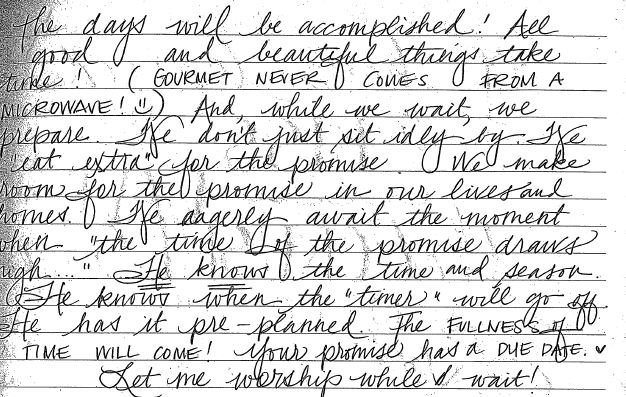 the days will be accomplished! All
good and beautiful things take
time! (GOURMET NEVER COMES FROM A
MICROWAVE! ☺) And, while we wait, we
prepare. We don't just sit idly by. We
"eat extra" for the promise. We make
room for the promise in our lives and
homes. We eagerly await the moment
when "the time of the promise draws
nigh...." He knows the time and season.
He knows when the "timer" will go off.
He has it pre-planned. The FULLNESS of
TIME WILL COME! Your promise has a DUE DATE. ♥
Let me worship while I wait!